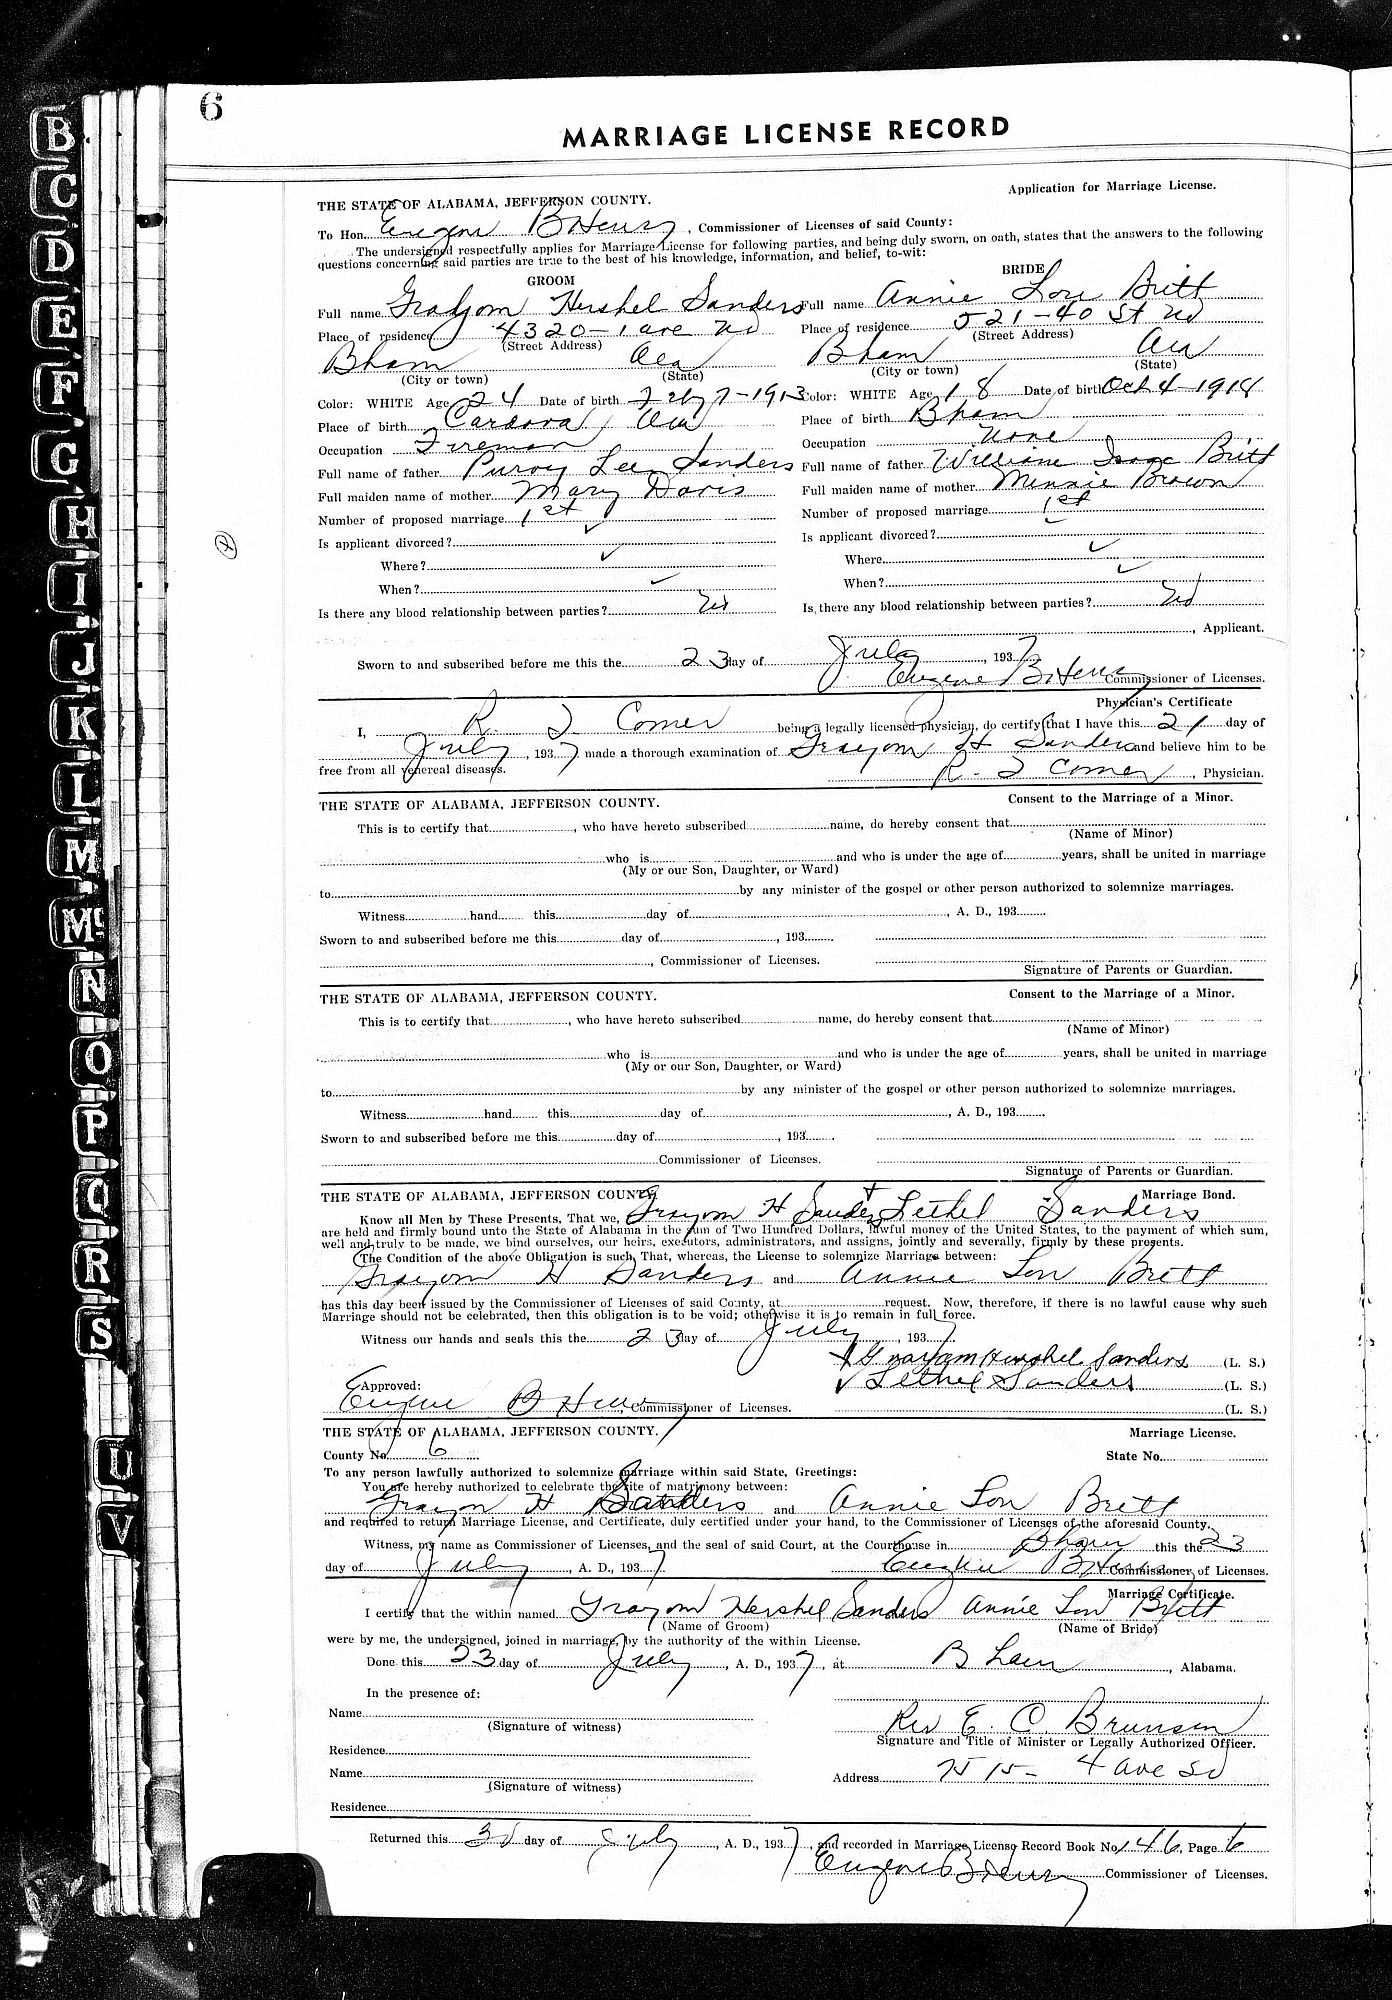 6
MARRIAGE LICENSE RECORD
Application for Marriage License.
THE STATE OF ALABAMA, JEFFERSON COUNTY.
To Hon. Eugene B Henry, Commissioner of Licenses of said County:
The undersigned respectfully applies for Marriage License for following parties, and being duly sworn, on oath, states that the answers to the following
questions concerning said parties are true to the best of his knowledge, information, and belief, to-wit:
GROOM BRIDE
Full name Hershel Sanders Full name Annie Lou Britt
Place of residence 4320-1 ave No Place of residence 521-40 St No
(Street Address) (Street Address)
Bham Ala Bham Ala
(City or town) (State) (City or town) (State)
Color: WHITE Age 24 Date of birth 7-1913 Color: WHITE Age 18 Date of birth Oct 4-1918
Place of birth Cordova, Ala Place of birth Bham
Occupation Fireman Occupation None
Full name of father Purvy Lee Sanders Full name of father William Isaac Britt
Full maiden name of mother Mary Davis Full maiden name of mother Minnie Brown
Number of proposed marriage 1st Number of proposed marriage 1st
Is applicant divorced? ✓ Is applicant divorced? ✓
Where? ✓ Where ✓
When? ✓ When? ✓
Is there any blood relationship between parties? No Is there any blood relationship between parties? No
, Applicant.
Sworn to and subscribed before me this the 23 day of July, 1937
Eugene B Henry Commissioner of Licenses.
Physician's Certificate
I, R. T Comer being a legally licensed physician, do certify that I have this 21 day of
July, 1937 made a thorough examination of H Sanders and believe him to be
free from all venereal diseases. R. T Comer, Physician.
THE STATE OF ALABAMA, JEFFERSON COUNTY. Consent to the Marriage of a Minor.
This is to certify that , who have hereto subscribed name, do hereby consent that
(Name of Minor)
who is and who is under the age of years, shall be united in marriage
(My or our Son, Daughter, or Ward)
to by any minister of the gospel or other person authorized to solemnize marriages.
Witness hand this day of , A. D., 193
Sworn to and subscribed before me this day of , 193
, Commissioner of Licenses.
Signature of Parents or Guardian.
THE STATE OF ALABAMA, JEFFERSON COUNTY. Consent to the Marriage of a Minor.
This is to certify that , who have hereto subscribed name, do hereby consent that
(Name of Minor)
who is and who is under the age of years, shall be united in marriage
(My or our Son, Daughter, or Ward)
to by any minister of the gospel or other person authorized to solemnize marriages.
Witness hand this day of , A. D., 193
Sworn to and subscribed before me this day of , 193
Commissioner of Licenses.
Signature of Parents or Guardian.
THE STATE OF ALABAMA, JEFFERSON COUNTY. Marriage Bond.
Know all Men by These Presents, That we, H Sanders + Lethel Sanders
are held and firmly bound unto the State of Alabama in the sum of Two Hundred Dollars, lawful money of the United States, to the payment of which sum,
well and truly to be made, we bind ourselves, our heirs, executors, administrators, and assigns, jointly and severally, firmly by these presents.
The Condition of the above Obligation is such, That, whereas, the License to solemnize Marriage between:
H Sanders and Annie Lou Britt
has this day been issued by the Commissioner of Licenses of said County, at request. Now, therefore, if there is no lawful cause why such
Marriage should not be celebrated, then this obligation is to be void; otherwise it is to remain in full force.
Witness our hands and seals this the 23 day of July, 1937
Hershel Sanders (L. S.)
Approved: Lethel Sanders (L. S.)
Eugene B Henry, Commissioner of Licenses. (L. S.)
THE STATE OF ALABAMA, JEFFERSON COUNTY. Marriage License.
County No. 6 State No.
To any person lawfully authorized to solemnize marriage within said State, Greetings:
You are hereby authorized to celebrate the rite of matrimony between:
H Sanders and Annie Lou Britt
and required to return Marriage License, and Certificate, duly certified under your hand, to the Commissioner of Licenses of the aforesaid County.
Witness, my name as Commissioner of Licenses, and the seal of said Court, at the Courthouse in Bham this the 23
day of July, A. D., 1937 Eugene B Henry Commissioner of Licenses.
Marriage Certificate.
I certify that the within named Hershel Sanders Annie Lou Britt
(Name of Groom) (Name of Bride)
were by me, the undersigned, joined in marriage, by the authority of the within License.
Done this 23 day of July, A. D., 1937, at Bham, Alabama.
In the presence of:
Name Rev E. C. Brunson
(Signature of witness) Signature and Title of Minister or Legally Authorized Officer.
Residence
Name Address 7515- 4 ave So
(Signature of witness)
Residence
Returned this 30 day of July, A. D., 1937, and recorded in Marriage License Record Book No. 146, Page 6
Eugene B Henry Commissioner of Licenses.
B
C
D
E
F
G
H
I
J
K
L
M
Mc
N
O
P
Q
R
S
U
V